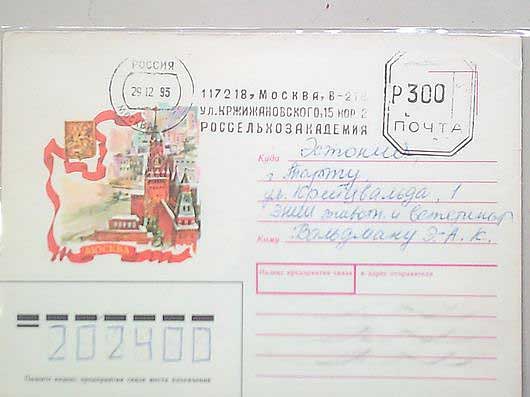 РОССИЯ
29 12 93
МОСКВА
117218, МОСКВА, В-218
УЛ. КРЖИЖАНОВСКОГО, 15 КОР 2
РОССЕЛЬХОЗАКАДЕМИЯ
Р300
ПОЧТА
МОСКВА
Куда Эстония,
г. Тарту,
ул. Крейцвальда, 1
животн. и ветеринар
Кому Вальдману Э-А. К.
Индекс предприятия связи и адрес отправителя
202400
Пишите индекс предприятия связи места назначения